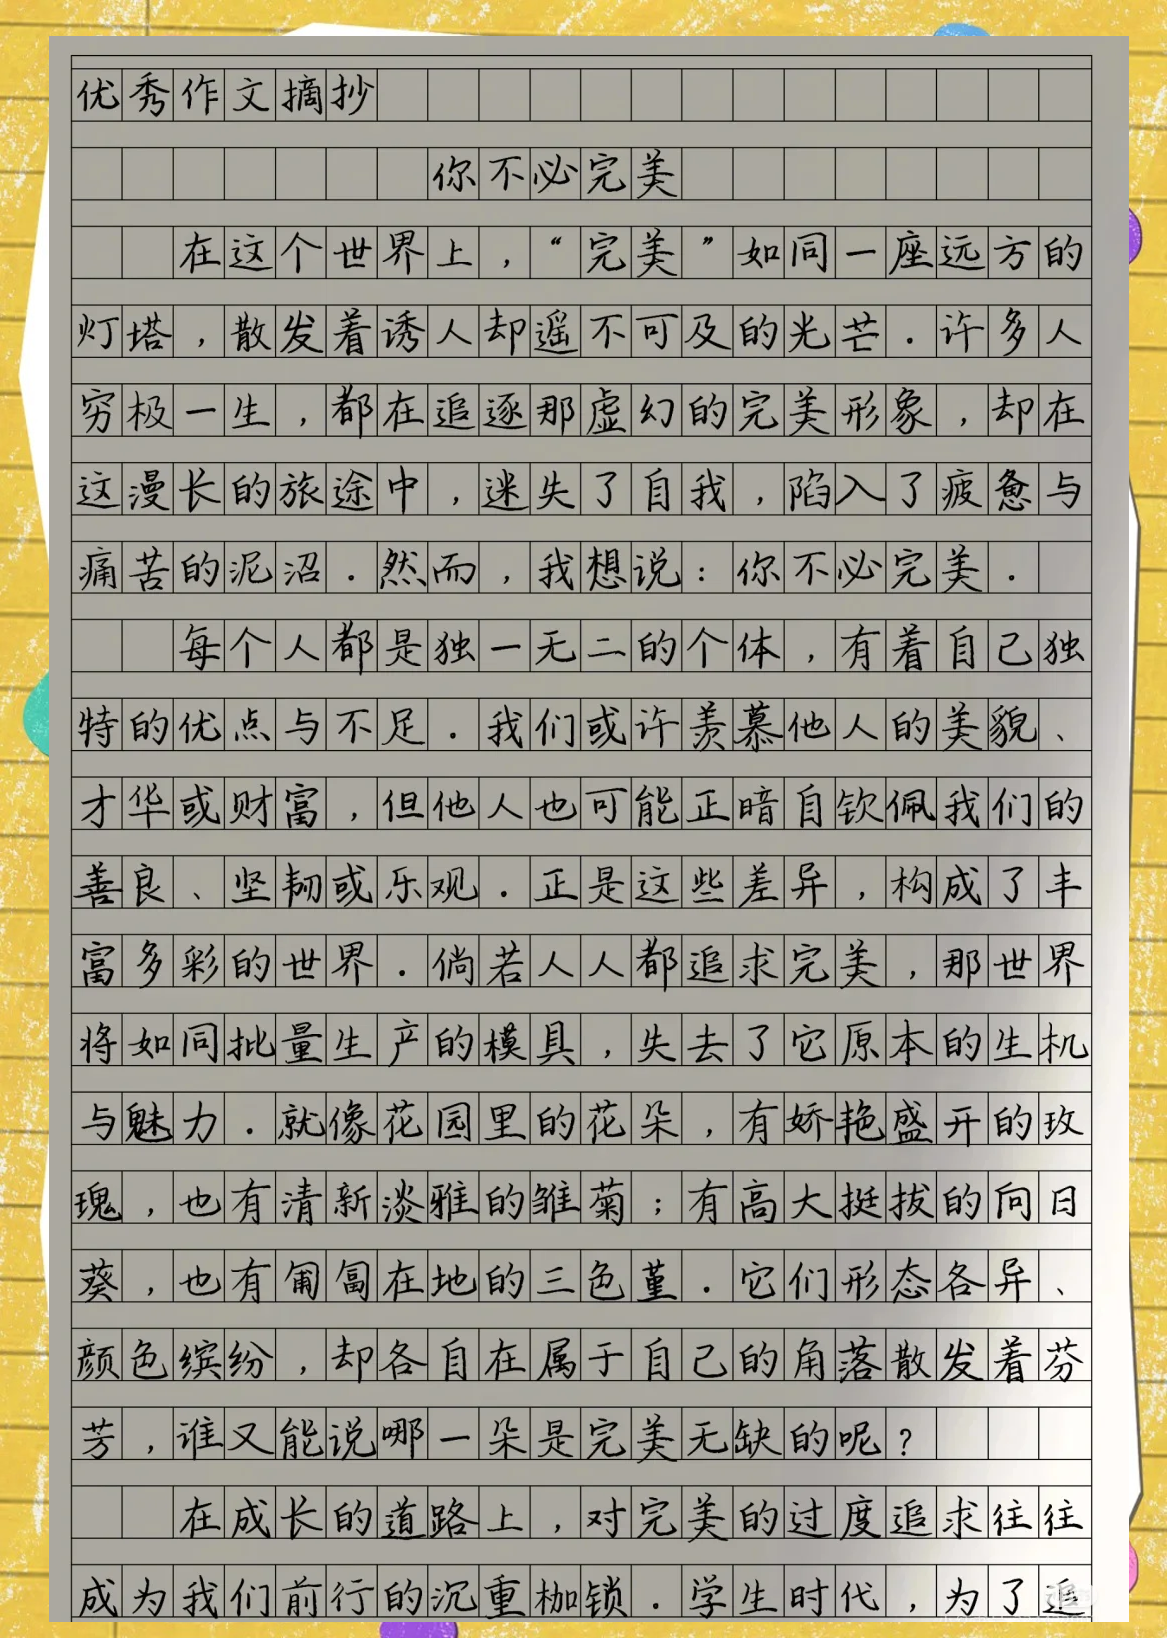 优秀作文摘抄
你不必完美
在这个世界上，“完美”如同一座远方的
灯塔，散发着诱人却遥不可及的光芒．许多人
穷极一生，都在追逐那虚幻的完美形象，却在
这漫长的旅途中，迷失了自我，陷入了疲惫与
痛苦的泥沼．然而，我想说：你不必完美．
每个人都是独一无二的个体，有着自己独
特的优点与不足．我们或许羡慕他人的美貌、
才华或财富，但他人也可能正暗自钦佩我们的
善良、坚韧或乐观．正是这些差异，构成了丰
富多彩的世界．倘若人人都追求完美，那世界
将如同批量生产的模具，失去了它原本的生机
与魅力．就像花园里的花朵，有娇艳盛开的玫
瑰，也有清新淡雅的雏菊；有高大挺拔的向日
葵，也有匍匐在地的三色堇．它们形态各异、
颜色缤纷，却各自在属于自己的角落散发着芬
芳，谁又能说哪一朵是完美无缺的呢？
在成长的道路上，对完美的过度追求往往
成为我们前行的沉重枷锁．学生时代，为了追